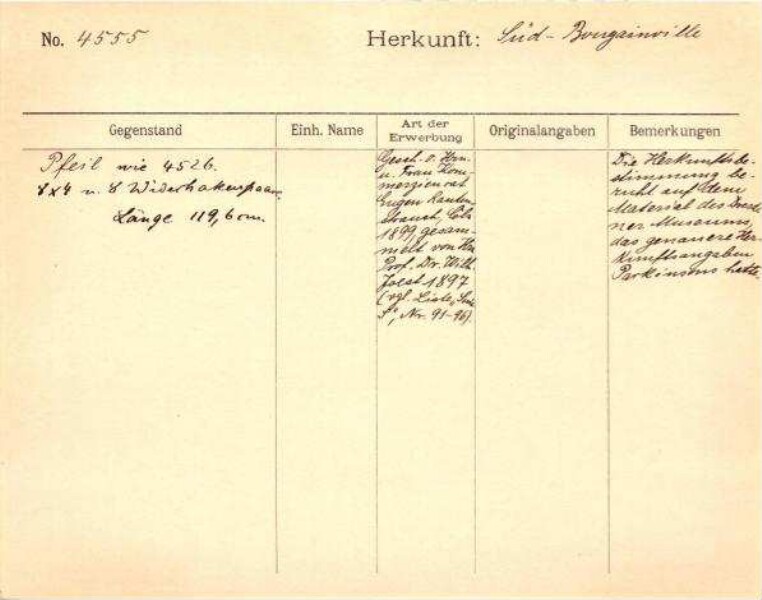 No. 4555
Herkunft: Süd-Bougainville
Gegenstand
Einh. Name
Art der Erwerbung
Originalangaben
Bemerkungen
Pfeil wie 4526.
8x4 u. 8 Widerhakenpaare,
Länge 119,6 cm.
Gesch. v. Hrn.
u. Frau Kom-
merzienrat
Eugen Rauten-
strauch, Cöln
1899, gesam-
melt von Hn
Prof. Dr. Wilh.
Joest 1897
(vgl. Liste,
Nr. 91-96).
Die Herkunftsbe-
stimmung be-
ruht auf dem
Material des Dresde-
ner Museums,
das genauere Her-
kunftsangaben
Parkinsons hatte.